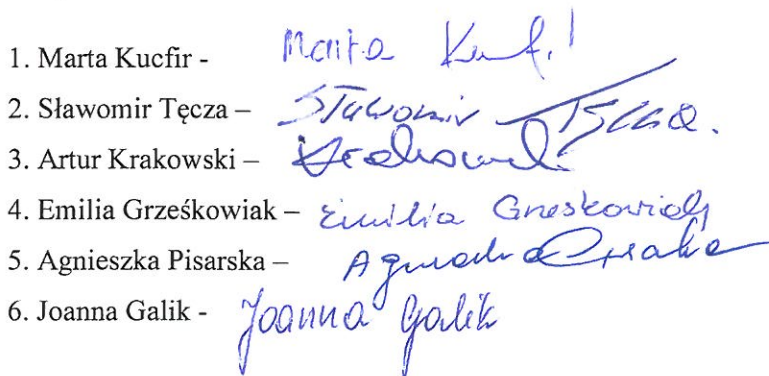 1. Marta Kucfir - Marta
2. Sławomir Tęcza – Sławomir Tęcza.
3. Artur Krakowski –
4. Emilia Grześkowiak – Emilia Grześkowiak
5. Agnieszka Pisarska –
6. Joanna Galik - Joanna Galik